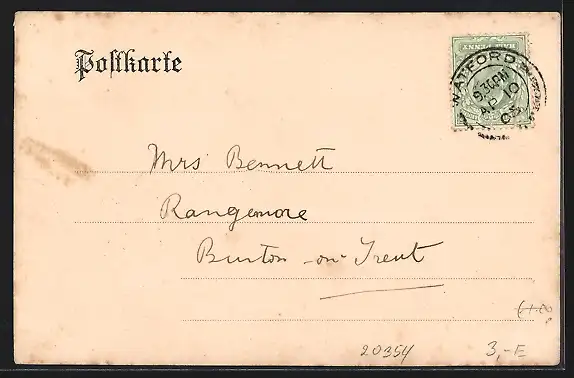 Postkarte
HALF PENNY
WATFORD
9.30PM
AP 10
03
Mrs Bennett
Rangemore
Burton-on-Trent
20354
3,-E